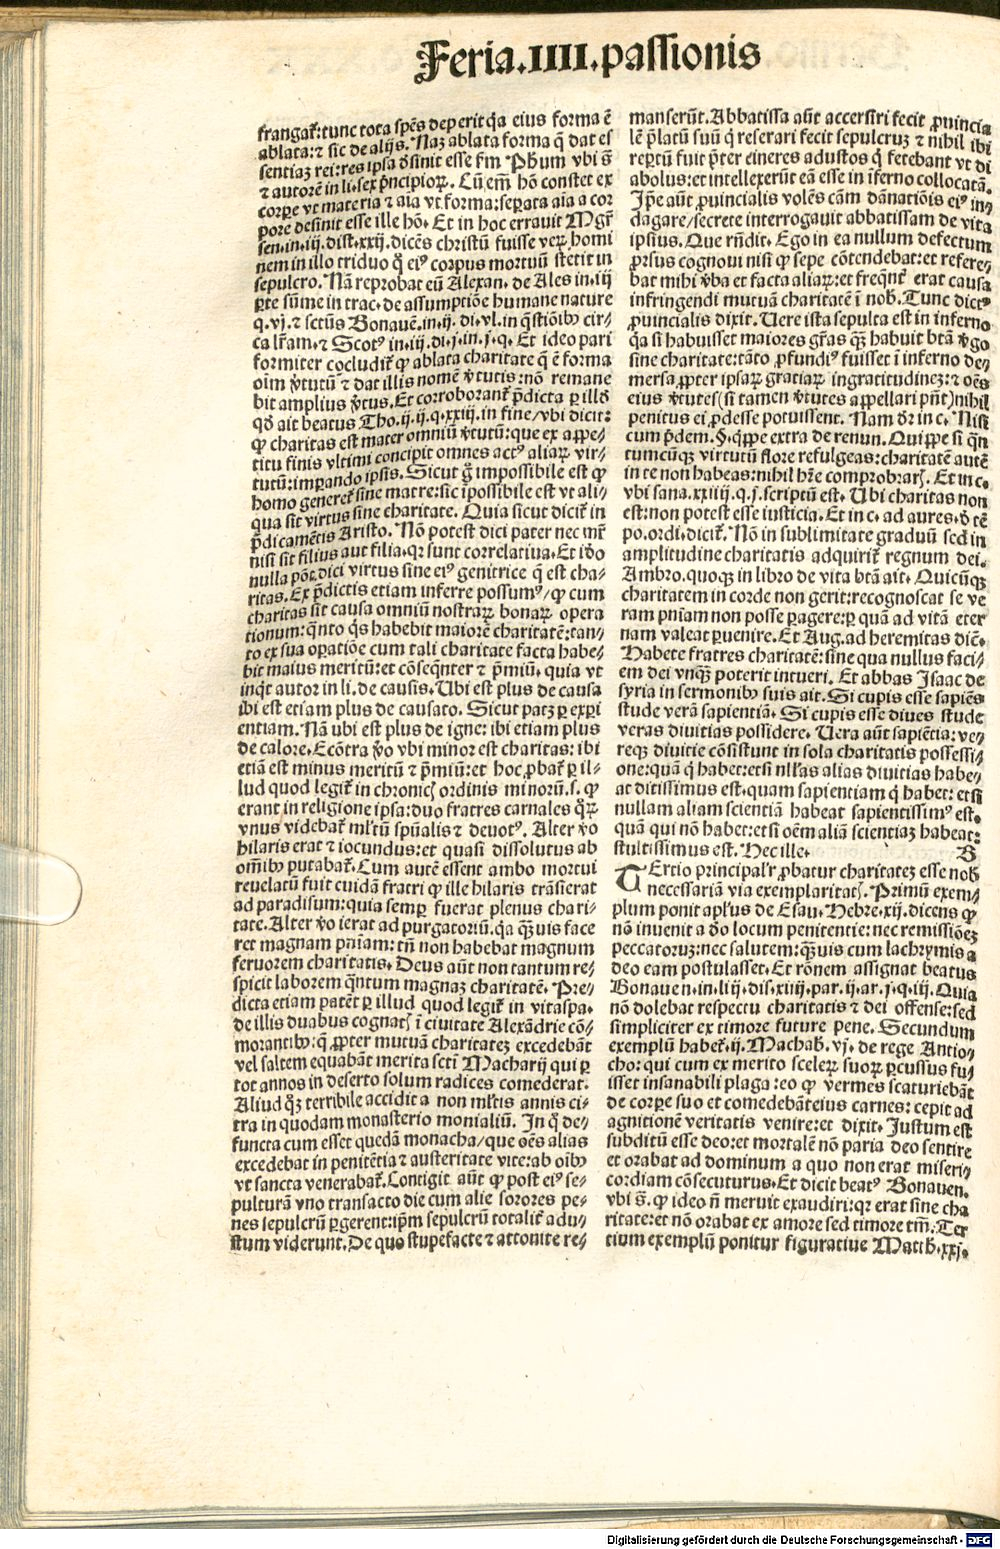 Feria.IIII.passionis
frangat᷑:tunc tota spēs deperit q̇a eius forma ē
ablata:⁊ sic de alijs. Naꝫ ablata forma q̄ dat es
sentiaꝫ rei:res ipsa d̓sinit esse ẜm Ph̓um vbi s̄
⁊ autorē in li.sex p̄ncipioꝝ. Cū em̄ hō constet ex
corpe vt materia ⁊ aīa vt forma:sepata aīa a cor
pore desinit esse ille hō. Et in hoc erravit Mgr̄
sen.in.iij.dist.xxij.dicēs christū fuisse veꝝ homi
nem in illo triduo q̄ eiꝰ corpus mortuū stetit in
sepulcro. Nā reprobat eū Alexan. de Ales in.iij
ꝑte sūme in trac.de assumptiōe humane nature
q.vj.⁊ sctūs Bonauē.in.ij. di.vl.in q̄stiōibꝰ cir⸗
ca lr̄am.⁊ Scotꝰ in.iij.di.j.in.j.q. Et ideo pari
formiter cōcludit᷑ ꝙ ablata charitate q̄ ē forma
oīm v̓tutū ⁊ dat illis nomē v̓tutis:nō remane
bit amplius v̓tus. Et corroborant᷑ p̄dicta ꝑ illđ
qđ ait beatus Tho.ij.ij.q.xxiij.in fine/vbi dicit:
ꝙ charitas est mater omniū v̓tutū:que ex appe⸗
titu finis vltimi concipit omnes actꝰ aliaꝝ vir⸗
tutū:impando ipsis. Sicut g̊ impossibile est ꝙ
homo generet᷑ sine matre:sic ipossibile est vt ali⸗
qua sit virtus sine charitate. Quia sicut dicit᷑ in
p̄dicamētis Aristo. Nō potest dici pater nec mr̄
nisi sit filius aut filia.qꝛ sunt correlativa. Et iđo
nulla pōt dici virtus sine eiꝰ genitrice q̄ est cha⸗
ritas. Ex p̄dictis etiam inferre possumꝰ/ꝙ cum
charitas sit causa omniū nostraꝝ bonaꝝ opera
tionum:q̄nto q̇s habebit maiorē charitatē:tan⸗
to ex sua opatiōe cum tali charitate facta habe⸗
bit maius meritū:et cōseq̄nter ⁊ p̄miū. quia vt
inq̇t autor in li. de causis. Ubi est plus de causa
ibi est etiam plus de causato. Sicut patꝫ ꝑ expi
entiam. Nā ubi est plus de igne: ibi etiam plus
de calore. Ecōtra v̓o vbi minor est charitas: ibi
etiā est minus meritū ⁊ p̄miū:et hoc ꝓbat᷑ ꝑ il⸗
lud quod legit᷑ in chronicꝭ ordinis minorū.s. ꝙ
erant in religione ipsa:duo fratres carnales q̊ꝝ
vnus videbat᷑ ml̓tū spūalis ⁊ devotꝰ. Alter v̓o
hilaris erat ⁊ iocundus:et quasi dissolutus ab
oībꝰ putabat᷑. Cum autē essent ambo mortui
revelatū fuit cuidā fratri ꝙ ille hilaris trāsierat
ad paradisum:quia semp fuerat plenus chari⸗
tate. Alter v̓o ierat ad purgatoriū.q̇a q̄ꝫuis face
ret magnam pn̄iam: tn̄ non habebat magnum
fervorem charitatis. Deus aūt non tantum re⸗
spicit laborem q̄ntum magnaꝫ charitatē. Pre⸗
dicta etiam patēt ꝑ illud quod legit᷑ in vitaspa.
de illis duabus cognatꝭ ī ciuitate Alexādrie cō⸗
morantibꝰ:q̄ ꝓpter mutuā charitateꝫ excedebāt
vel saltem equabāt merita scti Macharij qui ꝑ
tot annos in deserto solum radices comederat.
Aliud q̊ꝫ terribile accidit a non ml̓tis annis ci⸗
tra in quodam monasterio monialiū. In q̊ de⸗
functa cum esset quedā monacha/que oēs alias
excedebat in penitētia ⁊ austeritate vite:ab oībꝰ
vt sancta venerabat᷑. Contigit aūt ꝙ post eiꝰ se⸗
pulturā vno transacto die cum alie sorores pe⸗
nes sepulcrū pgerent:ipm̄ sepulcrū totalit᷑ adu⸗
stum viderunt. De quo stupefacte ⁊ attonite re⸗
manserūt. Abbatissa aūt accersiri fecit ꝓuincia
lē p̄latū suū q̇ reserari fecit sepulcruꝫ ⁊ nihil ibi
reptū fuit p̄ter cineres adustos q̇ fetebant vt di
abolus:et intellexerūt eā esse in īferno collocatā.
Ip̄e aūt ꝓuincialis volēs cām dānatiōis eiꝰ in⸗
dagare/secrete interrogauit abbatissam de vita
ipsius. Que rn̄dit. Ego in ea nullum defectum
ꝓrsus cognoui nisi ꝙ sepe cōtendebat:et refere⸗
bat mihi v̓ba et facta aliaꝝ:et freq̄nt᷑ erat causa
infringendi mutuā charitatē ī nob̄. Tunc dictꝰ
ꝓuincialis dixit. Uere ista sepulta est in inferno
q̇a si habuisset maiores gr̄as q̄ꝫ habuit btā v̓go
sine charitate:tāto ꝓfundiꝰ fuisset ī inferno de⸗
mersa.ꝓpter ipsaꝝ gratiaꝝ ingratitudineꝫ: ⁊ oēs
eius v̓tutes(si tamen v̓tutes appellari pn̄t)nihil
penitus ei ꝓdesse potuissent. Nam dr̄ in c. Nisi
cum p̄dem. §.q̇ppe extra de renun. Quippe si q̄n
tumcūqꝫ virtutū flore refulgeas:charitatē autē
in te non habeas:nihil hr̄e comprobarꝭ. Et in c.
vbi sana.xxiiij.q.j.scriptū est. Ubi charitas non
est:non potest esse iusticia. Et in c. ad aures.đ tē
po.ordi.dicit᷑. Nō in sublimitate graduū sed in
amplitudine charitatis adquirit᷑ regnum dei.
Ambro.quoqꝫ in libro de vita btā ait. Quicūqꝫ
charitatem in corde non gerit:recognoscat se ve
ram pn̄iam non posse pagere:ꝑ quā ad vitā eter
nam valeat puenire. Et Aug.ad heremitas diē.
Habete fratres charitatē:sine qua nullus faci⸗
em dei vnq̄ꝫ poterit intueri. Et abbas Isaac de
syria in sermonibꝰ suis ait. Si cupis esse sapiēs
stude verā sapientiā. Si cupis esse diues stude
veras diuitias possidere. Uera aūt sapiētia: ve⸗
reqꝫ diuitie cōsistunt in sola charitatis possessi⸗
one:quā q̇ habet:etsi nll̓as alias diuitias habe⸗
at ditissimus est.quam sapientiam q̇ habet: etsi
nullam aliam scientiā habeat sapientissimꝰ est.
quā qui nō habet:etsi oēm aliā scientiaꝫ habeat:
stultissimus est. Hec ille. B
TErtio principalr̓ ꝓbatur charitateꝫ esse nob̄
necessariā via exemplaritatꝭ. Primū exem⸗
plum ponit apl̓us de Esau. Hebre.xij.dicens ꝙ
nō inuenit a đo locum penitentie: nec remissiōeꝫ
peccatoruꝫ:nec salutem:q̄ꝫuis cum lachrymis a
deo eam postulasset. Et rōnem assignat beatus
Bonauen.in.iiij.dis.xiiij.par.ij.ar.j.q.iij. Quia
nō dolebat respectu charitatis ⁊ dei offense:sed
simpliciter ex timore future pene. Secundum
exemplū habet᷑.ij. Machab̄.vj. de rege Antio⸗
cho: qui cum ex merito sceleꝝ suoꝝ pcussus fu⸗
isset insanabili plaga:eo ꝙ vermes scaturiebāt
de corpe suo et comedebāt eius carnes: cepit ad
agnitionē veritatis venire:et dixit. Justum est
subditū esse deo:et mortalē nō paria deo sentire
et orabat ad dominum a quo non erat miseri⸗
cordiam cōsecuturus. Et dicit beatꝰ Bonauen.
vbi s̄. ꝙ ideo n̄ meruit exaudiri:qꝛ erat sine cha
ritate:et nō orabat ex amore sed timore tm̄. Ter
tium exemplū ponitur figuratiue Matth̄.xxj.
Digitalisierung gefördert durch die Deutsche Forschungsgemeinschaft - DFG